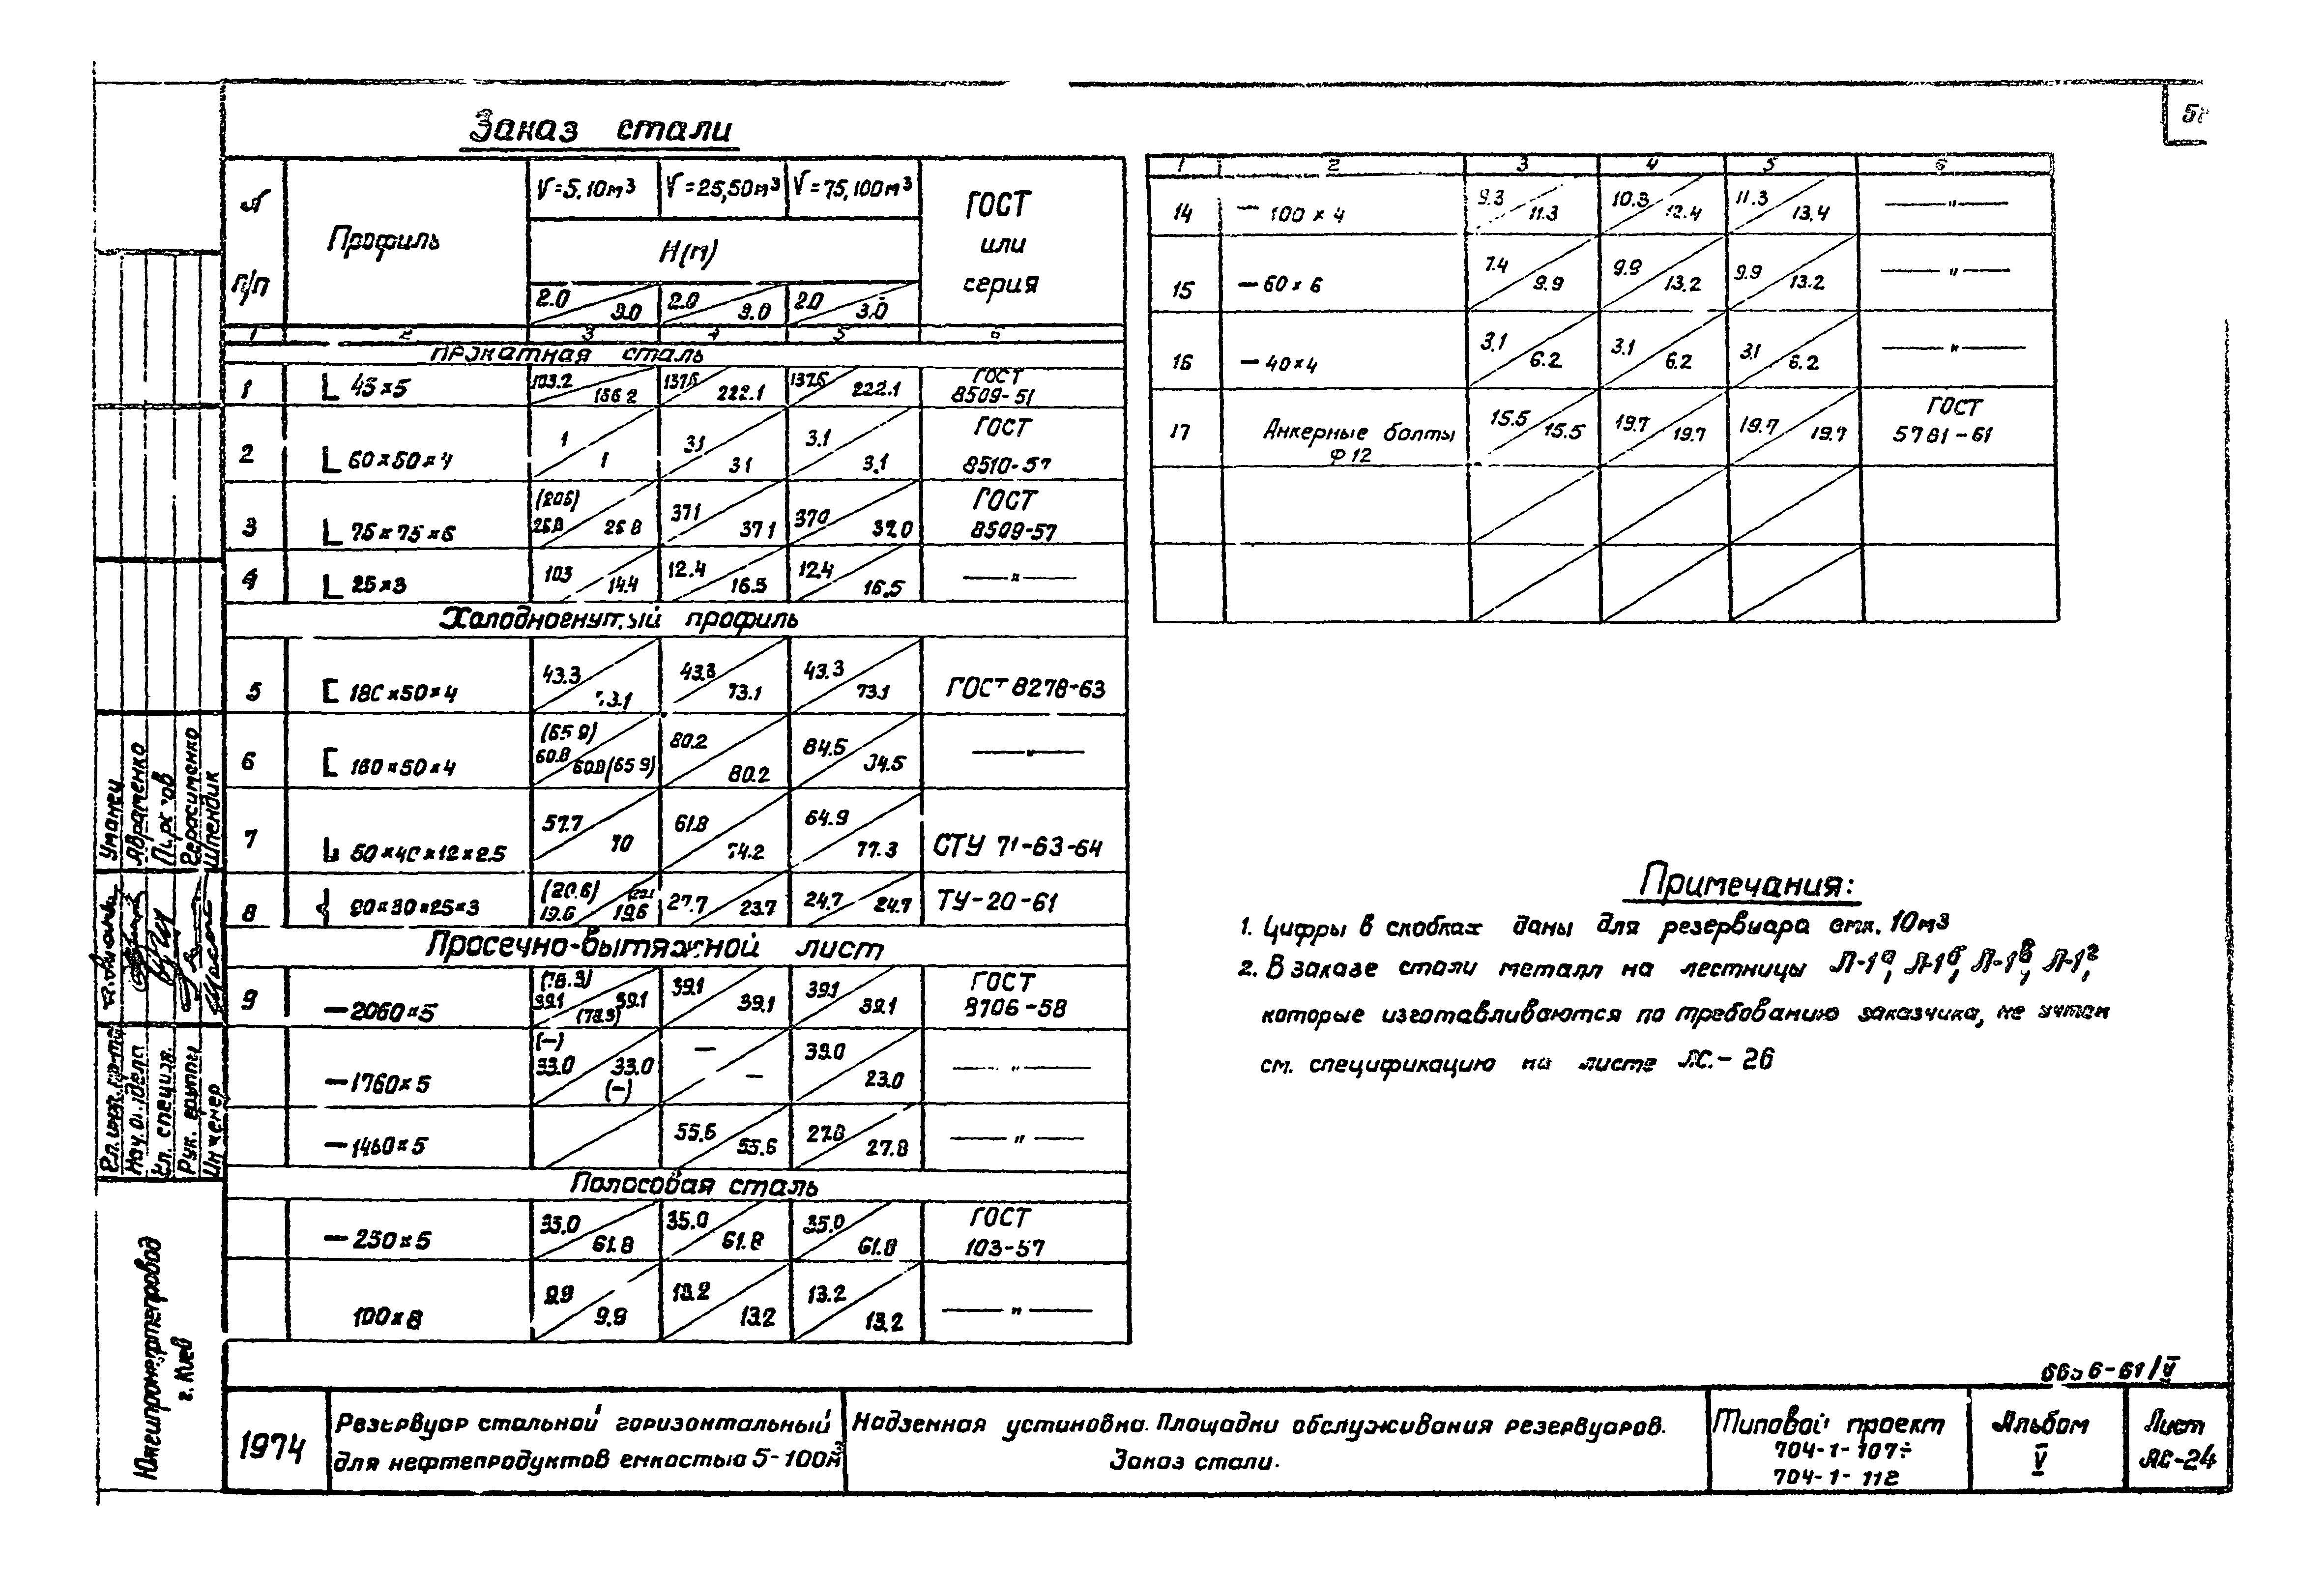 Заказ стали
№ п/п Профиль V=5,10м³ V=25,50м³ V=75,100м³ ГОСТ или серия
H(м)
2.0 3.0 2.0 3.0 2.0 3.0
1 2 3 4 5 6
Прокатная сталь
1 L 45×5 103.2 156.2 137.6 222.1 137.6 222.1 ГОСТ 8509-51
2 L 60×50×4 1 1 3.1 3.1 3.1 3.1 ГОСТ 8510-57
3 L 75×75×6 (206) 26.8 26.8 37.1 37.1 37.0 37.0 ГОСТ 8509-57
4 L 25×3 10.3 14.4 12.4 16.5 12.4 16.5 —"—
Холодногнутый профиль
5 [ 180×50×4 43.3 73.1 43.3 73.1 43.3 73.1 ГОСТ 8278-63
6 [ 160×50×4 (65.9) 60.8 60.8 (65.9) 80.2 80.2 84.5 84.5 —"—
7 50×40×12×2.5 57.7 70 61.8 74.2 64.9 77.3 СТУ 71-63-64
8 90×30×25×3 (20.6) 19.6 19.6 23.7 24.7 24.7 ТУ-20-61
Просечно-вытяжной лист
9 —2060×5 (78.3) 39.1 39.1 (78.3) 39.1 39.1 39.1 39.1 ГОСТ 8706-58
—1760×5 (-) 33.0 33.0 (-) — — 23.0 —"—
—1460×5 55.6 55.6 27.8 27.8 —"—
Полосовая сталь
—250×5 61.8 35.0 61.8 35.0 61.8 ГОСТ 103-57
100×8 9.9 9.9 13.2 13.2 13.2 13.2 —"—
1 2 3 4 5 6
14 — 100×4 9.3 11.3 10.3 12.4 11.3 13.4 —"—
15 —60×6 7.4 9.9 9.9 13.2 9.9 13.2 —"—
16 —40×4 3.1 6.2 3.1 6.2 3.1 6.2 —"—
17 Анкерные болты Ф12 15.5 15.5 19.7 19.7 19.7 19.7 ГОСТ 5781-61
Примечания:
1. Цифры в скобках даны для резервуара емк. 10м3
2. В заказе стали металл на лестницы Л-1а, Л-1б, Л-1в, Л-1г,
которые изготавливаются по требованию заказчика, не учтен
см. спецификацию на листе АС.-26
Уманец
Авраменко
Герасименко
Штендик
Гл. инж. пр-та
Нач. отдела
Гл. специал.
Рук. группы
Инженер
Южгипронефтепровод
г. Киев
1974
Резервуар стальной горизонтальный
для нефтепродуктов емкостью 5-100м³
Надземная установка. Площадки обслуживания резервуаров.
Заказ стали.
Типовой проект
704-1-107÷
704-1-112
Альбом
V
Лист
АС-24